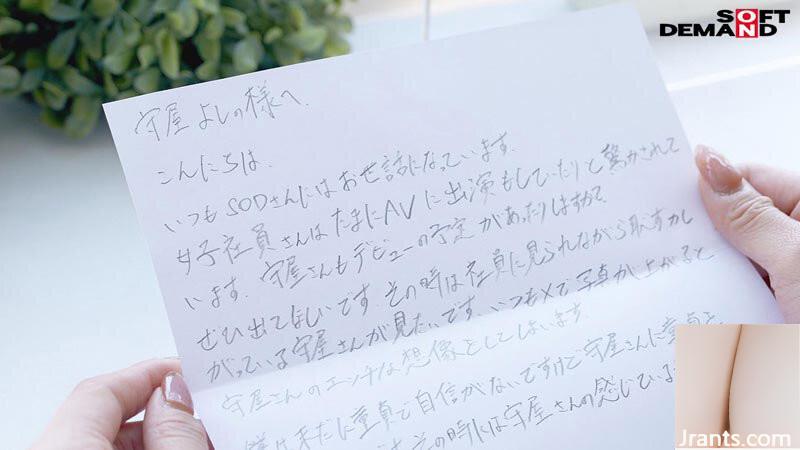 SOFT
DEMAND
守屋よしの様へ.
こんにちは.
いつもSODさんにはお世話になっています.
女子社員さんはたまにAVに出演もしていたりと驚かされて
います. 守屋さんもデビューの予定があったりしますか?
ぜひ出てほしいです. その時は社員に見られながら恥ずかし
がっている守屋さんが見たいです. いつもXで写真が上がると
守屋さんのエッチな想像をしてしまいます.
僕は未だに童貞で自信がないですけど守屋さんに童貞を
その時には守屋さんの感じている
Jrants.com